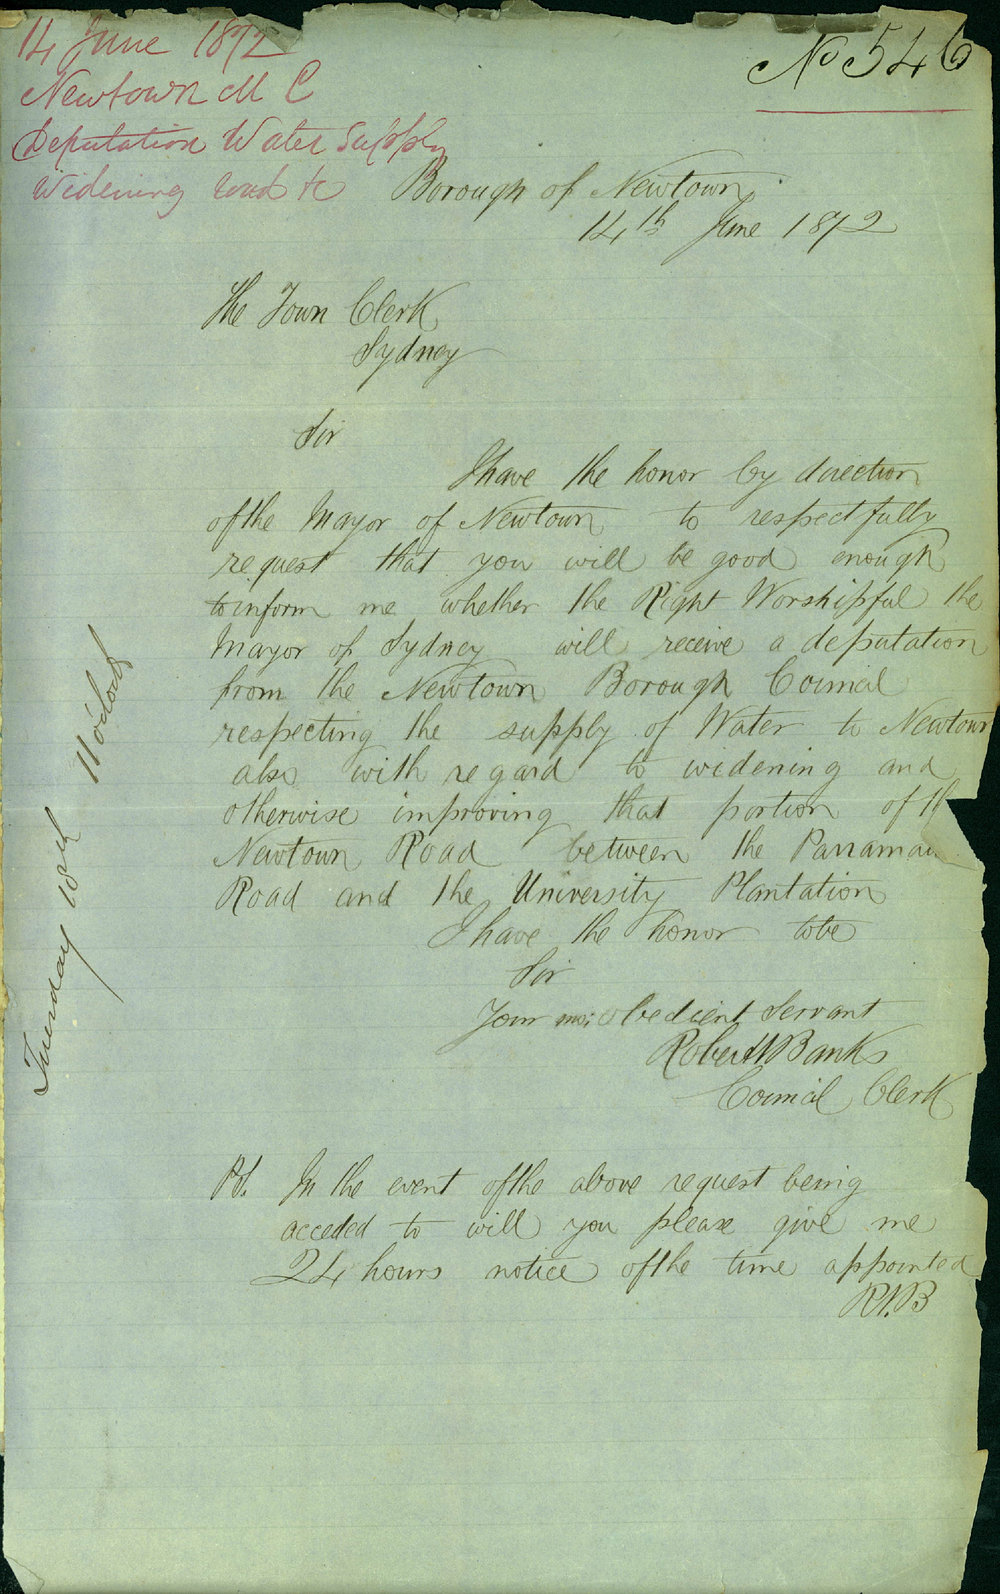 14 June 1872
Newtown M C
Deputation Water Supply
Widening road &c
No 546
Borough of Newtown
14th June 1872
The Town Clerk
Sydney
Sir
I have the honor by direction
of the Mayor of Newtown to respectfully
request that you will be good enough
to inform me whether the Right Worshipful the
Mayor of Sydney will receive a deputation
from the Newtown Borough Council
respecting the supply of Water to Newtown
also with regard to widening and
otherwise improving that portion of th
Newtown Road between the Parramat
Road and the University Plantation
I have the honor to be
Sir
Your mos obedient Servant
Robert Banks
Council Clerk
PS. In the event of the above request being
acceded to will you please give me
24 hours notice of the time appointed
R.B
Tuesday 18th 11 oclock